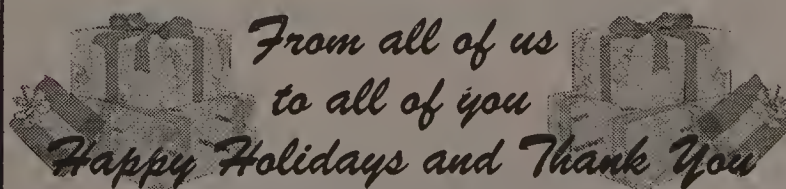 From all of us
to all of you
Happy Holidays and Thank You